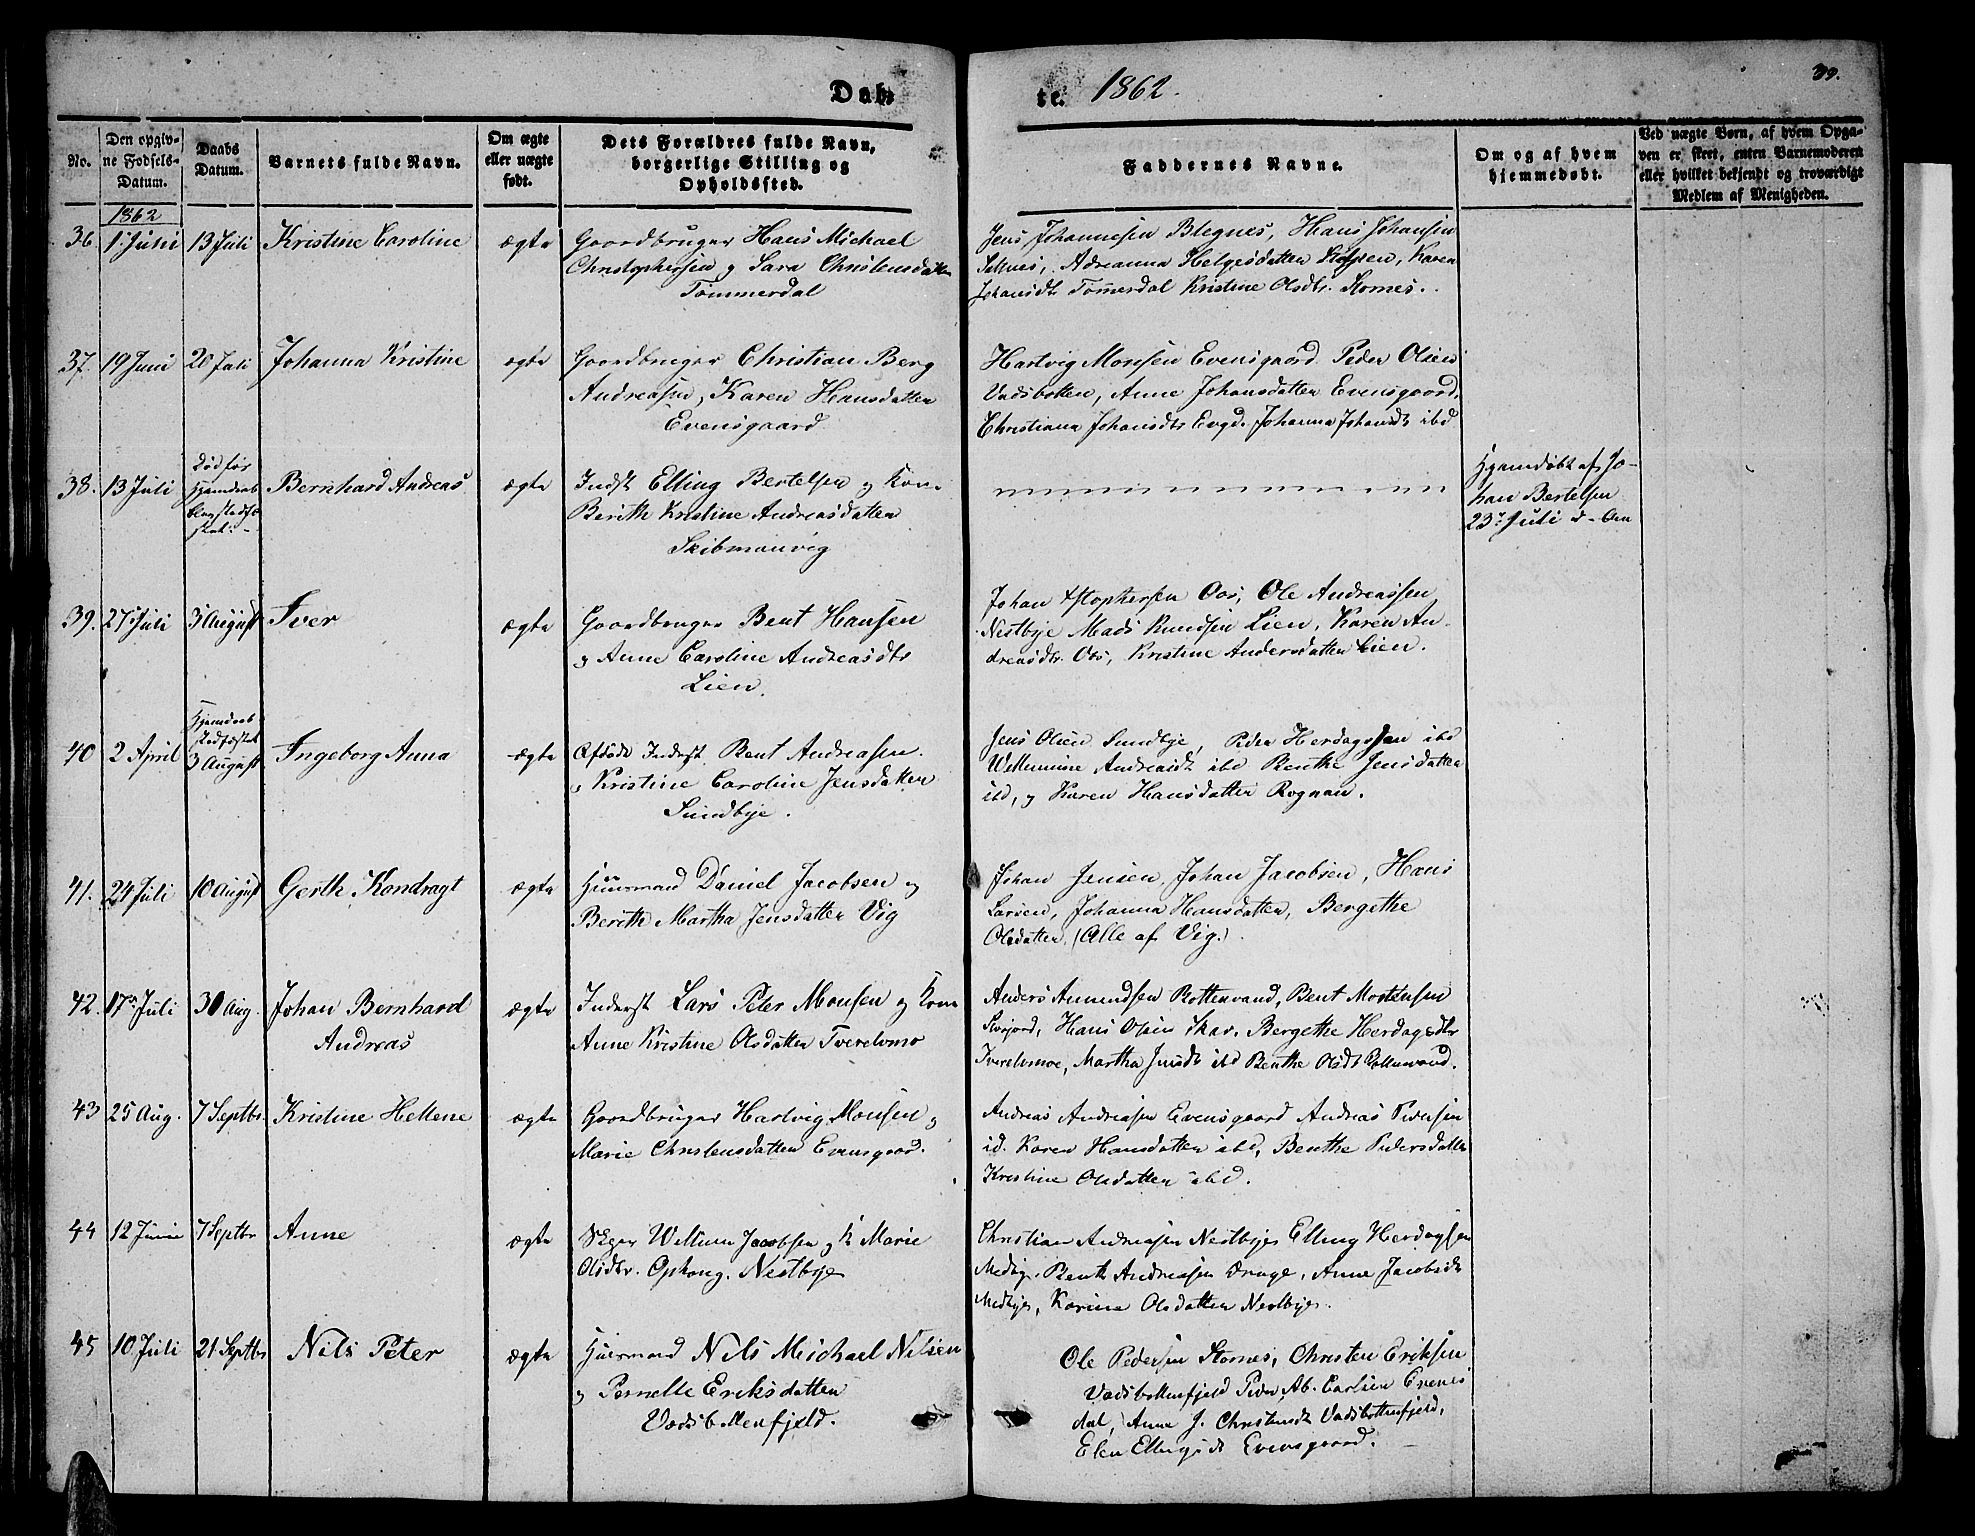 Døbte. 1862.
39.
No.
Den opgivne Fødsels-Datum.
Daabs Datum.
Barnets fulde Navn.
Om ægte eller uægte født.
Dets Forældres fulde Navn, borgerlige Stilling og Opholdssted.
Faddernes Navne.
Om og af hvem hjemmedøbt.
Ved uægte Børn, af hvem Opgaven er skeet, enten Barnemoderen eller hvilket bekjendt og troværdigt Medlem af Menigheden.
1862
36. 1. Juli 13 Juli Kristine Caroline ægte
Gaardbruger Hans Michael
Christophersen & Sara Christensdatter
Tømmerdal
Jens Johannesen Blegnes, Hans Johansen
Saltnes, Adreanna Helgesdatter, Karen
Johansdt. Tømerdal Kristine Olsdtr. Stornes.
37. 19 Juni 20 Juli Johanna Kristine ægte
Gaardbruger Christian Berg
Andreasen, Karen Hansdatter
Evensgaard
Hartvig Monsen Evensgaard Peder Olsen
Vadsbotten, Anne Johansdatter Evensgaard,
Christiana Johansdtr Evgd. Johanna Johansdt ibd
38. 13 Juli Død før
Hjemdaab
blev stadfæ
stet.
Bernhard Andreas ægte
Indst Elling Bertelsen & Kone
Berith Kristine Andreasdatter
Skibmanvig
Hjemdøbt af Jo-
han Bertelsen
23 Juli
39. 27 Juli 3 August Iver ægte
Gaardbruger Bent Hansen
& Anne Caroline Andreasdtr
Lien.
Johan Xstophersen Aas, Ole Andreassen
Nestbye Mads Knudsen Lien, Karen An-
dreasdtr. Aas, Kristine Andersdatter Lien.
40 2 April Hjemdaab
stadfæstet
3 August
Ingeborg Anna ægte
Afdøde Inderst Bent Andreasen
& Kristine Caroline Jensdatter
Sundbye.
Jens Olsen Sundbye, Peder Herdagsen ibd
Wellumine Andreasdt ibd Benthe Jensdatter
ibd, & Karen Hansdatter Rognan.
41. 24 Juli 10 August Gerth Kondragt ægte
Huusmand Daniel Jacobsen &
Berith Martha Jensdatter Vig
Johan Jensen, Johan Jacobsen, Hans
Larsen, Johanna Hansdatter, Bergethe
Olsdatter. (Alle af Vig.)
42. 17 Juli 30 Aug. Johan Bernhard
Andreas
ægte
Inderst Lars Peter Monsen & Kone
Anne Kristine Olsdatter Tverelvmo
Anders Amundsen Bottenvand, Bent Mortensen
Storjord, Hans Olsen Skar, Bergethe Herdagsdtr
Tverelvmoe, Martha Jensdt ibd Benthe Olsdt Bottenvand.
43 25 Aug. 7 Septbr. Kristine Hellene ægte
Gaardbruger Hartvig Monsen &
Marie Christensdatter Evensgaard.
Andreas Andreasen Evensgaard Andreas Pedersen
id. Karen Hansdatter ibd, Benthe Pedersdatter
Kristine Olsdatter ibd.
44 12 Junii 7 Septbr Anne ægte
Wellum Jacobsen & K Marie
Olsdtr. Ophong. Nestbye
Christian Andreasen Nestbye Elling Herdagsen
Medbye. Benth Andreasen Drage, Anne Jacobsdt
Medbye, Karina Olsdatter Nestbye.
45 10 Juli 21 Septbr Nils Peter ægte
Huusmand Nils Michael Nilsen
& Pernelle Eriksdatter
Vadsbottenfjeld.
Ole Pedersen Stornes, Christen Eriksen
Vadsbottenfjeld Peder Ab. Carlsen Evenes
dal, Anne J. Christensdt Vadsbottenfjeld,
Elen Ellingsdt Evensgaard.